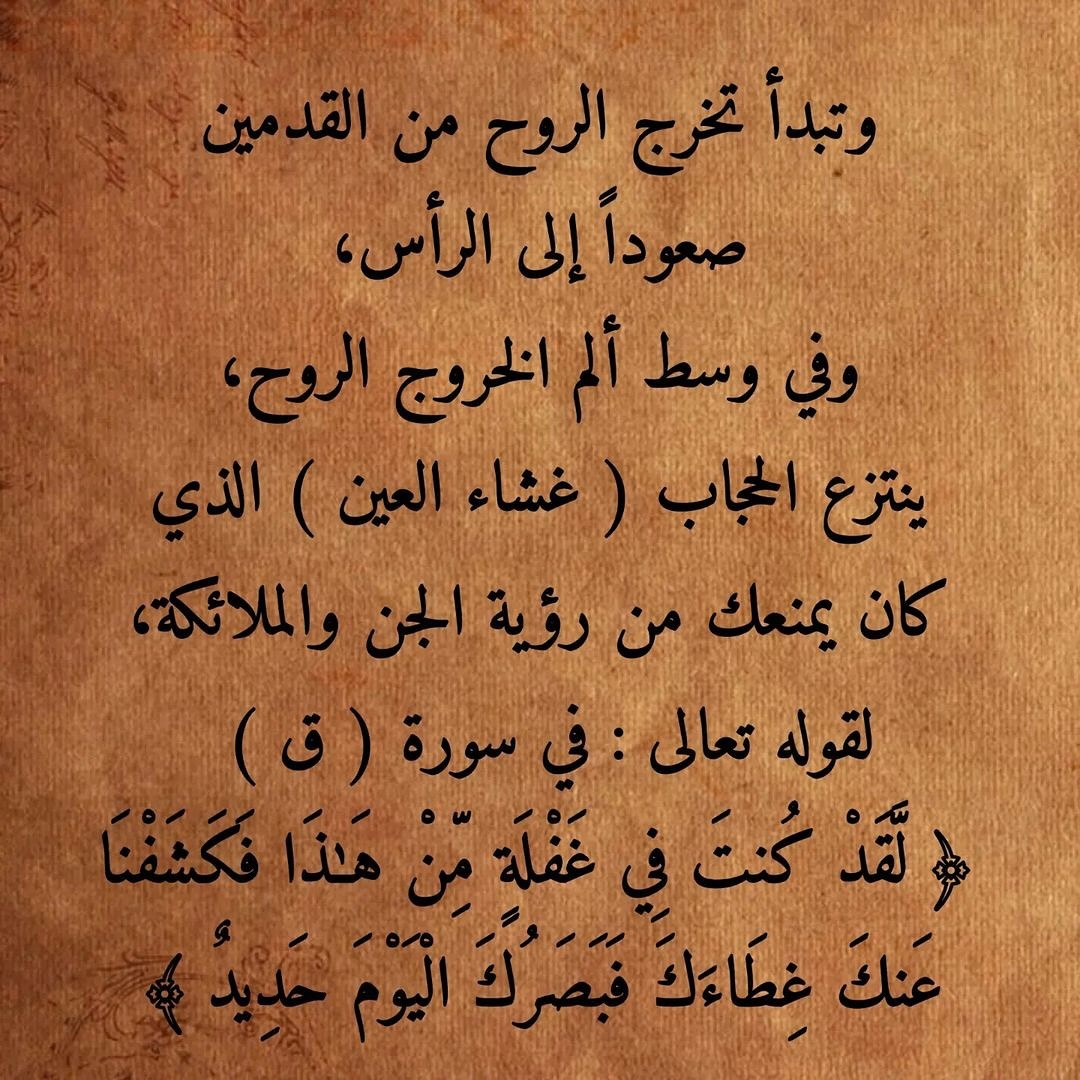 وتبدأ تخرج الروح من القدمين
صعوداً إلى الرأس،
وفي وسط ألم الخروج الروح،
ينتزع الحجاب ( غشاء العين ) الذي
كان يمنعك من رؤية الجن والملائكة،
لقوله تعالى : في سورة ( ق )
﴿ لَّقَدْ كُنتَ فِي غَفْلَةٍ مِّنْ هَـٰذَا فَكَشَفْنَا
عَنكَ غِطَاءَكَ فَبَصَرُكَ الْيَوْمَ حَدِيدٌ ﴾